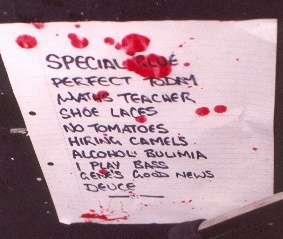 SPECIAL GLUE
PERFECT TODAY
MATHS TEACHER
SHOE LACES
NO TOMATOES
HIRING CAMELS
ALCOHOL BULIMIA
I PLAY BASS
GENE'S GOOD NEWS
DEUCE